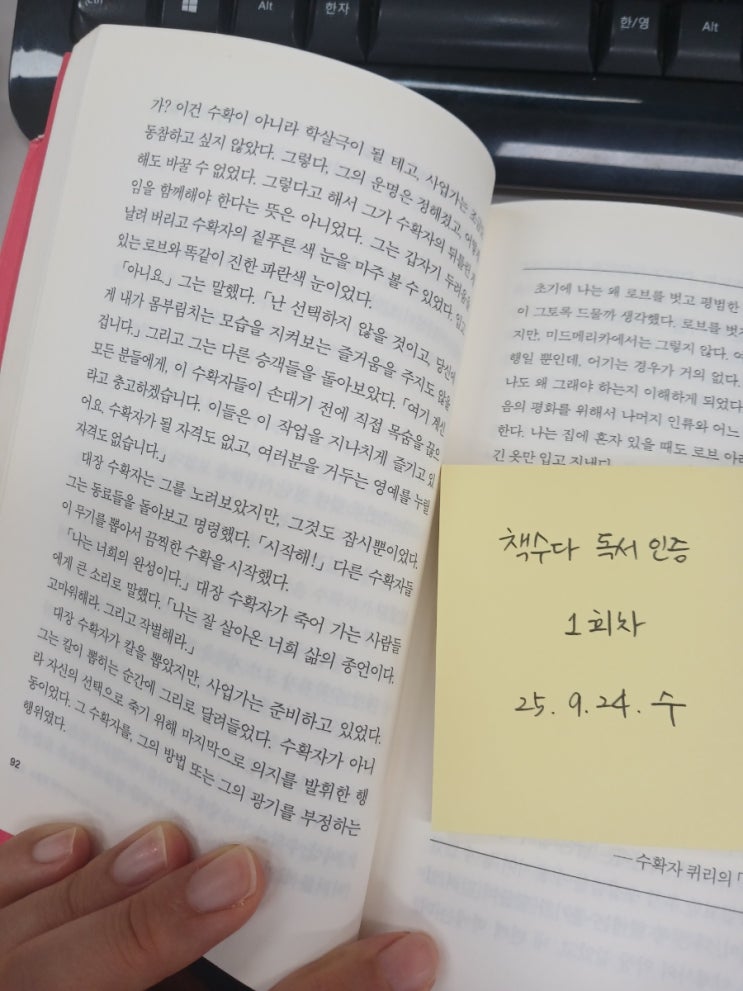 Alt
한자
한/영
Alt
가? 이건 수확이 아니라 학살극이 될 테고, 사업가는
동참하고 싶지 않았다. 그렇다, 그의 운명은 정해졌고,
해도 바꿀 수 없었다. 그렇다고 해서 그가 수확자의 뒤틀린
임을 함께해야 한다는 뜻은 아니었다. 그는 갑자기 두려움을
날려 버리고 수확자의 짙푸른 색 눈을 마주 볼 수 있었다. 입고
있는 로브와 똑같이 진한 파란색 눈이었다.
「아니요.」 그는 말했다. 「난 선택하지 않을 것이고, 당신에
게 내가 몸부림치는 모습을 지켜보는 즐거움을 주지도 않을
겁니다.」 그리고 그는 다른 승객들을 돌아보았다. 「여기 계신
모든 분들에게, 이 수확자들이 손대기 전에 직접 목숨을 끊으
라고 충고하겠습니다. 이들은 이 작업을 지나치게 즐기고 있
어요. 수확자가 될 자격도 없고, 여러분을 거두는 영예를 누릴
자격도 없습니다.」
대장 수확자는 그를 노려보았지만, 그것도 잠시뿐이었다.
그는 동료들을 돌아보고 명령했다. 「시작해!」 다른 수확자들
이 무기를 뽑아서 끔찍한 수확을 시작했다.
「나는 너희의 완성이다.」 대장 수확자가 죽어 가는 사람들
에게 큰 소리로 말했다. 「나는 잘 살아온 너희 삶의 종언이다.
고마워해라. 그리고 작별해라.」
대장 수확자가 칼을 뽑았지만, 사업가는 준비하고 있었다.
그는 칼이 뽑히는 순간에 그리로 달려들었다. 수확자가 아니
라 자신의 선택으로 죽기 위해 마지막으로 의지를 발휘한 행
동이었다. 그 수확자를, 그의 방법 또는 그의 광기를 부정하는
행위였다.
92
초기에 나는 왜 로브를 벗고 평범한
이 그토록 드물까 생각했다. 로브를 벗
지만, 미드메리카에서는 그렇지 않다.
행일 뿐인데, 어기는 경우가 거의 없다.
나도 왜 그래야 하는지 이해하게 되었다
음의 평화를 위해서 나머지 인류와 어느
한다. 나는 집에 혼자 있을 때도 로브 아
긴 옷만 입고 지낸다
책수다 독서 인증
1회차
25. 9. 24. 수
— 수확자 퀴리의 「